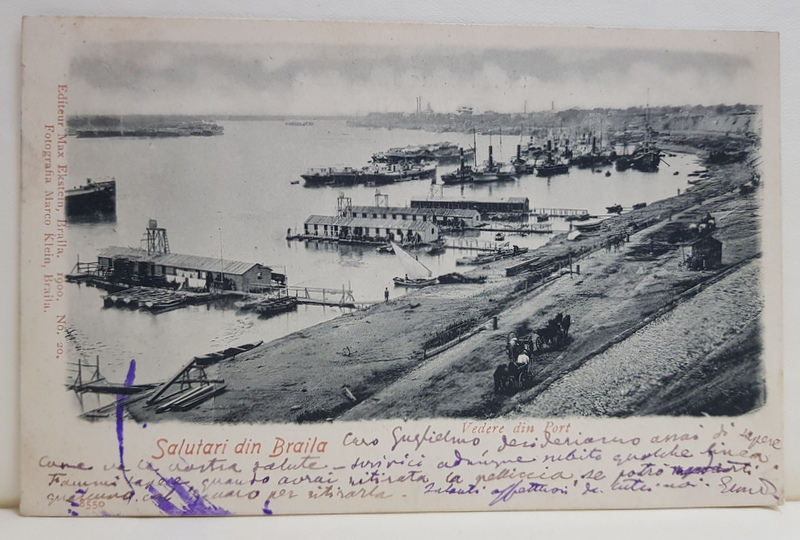 Editeur Max Ekstein, Braila. 1900. No. 20.
Fotografia Marco Klein, Braila.
Vedere din Port
Salutari din Braila
Caro Guglielmo desideriamo assai di sapere
Come va la vostra salute - scrivici adunque subito qualche linea.
Fammi sapere quando avrai ritirata la pelliccia se potrò mandarti
qualcuno col denaro per ritirarla. Saluti affettuosi di tutti noi.
8550